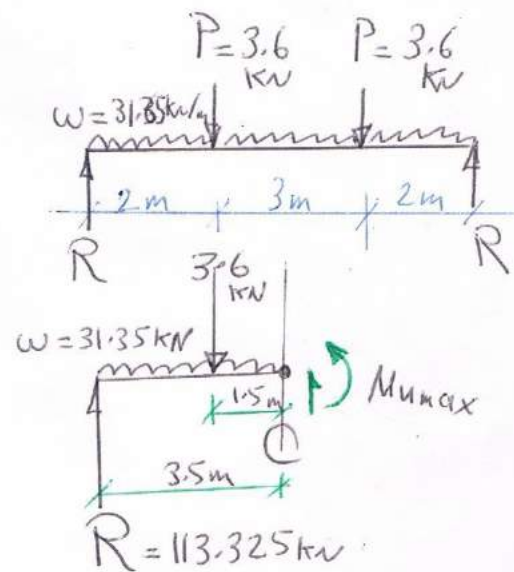 P=3.6 KN
P=3.6 KN
ω=31.35kN/m
2m 3m 2m
R R
3.6 KN
ω=31.35KN
1.5m
Mumax
3.5m
R=113.325KN